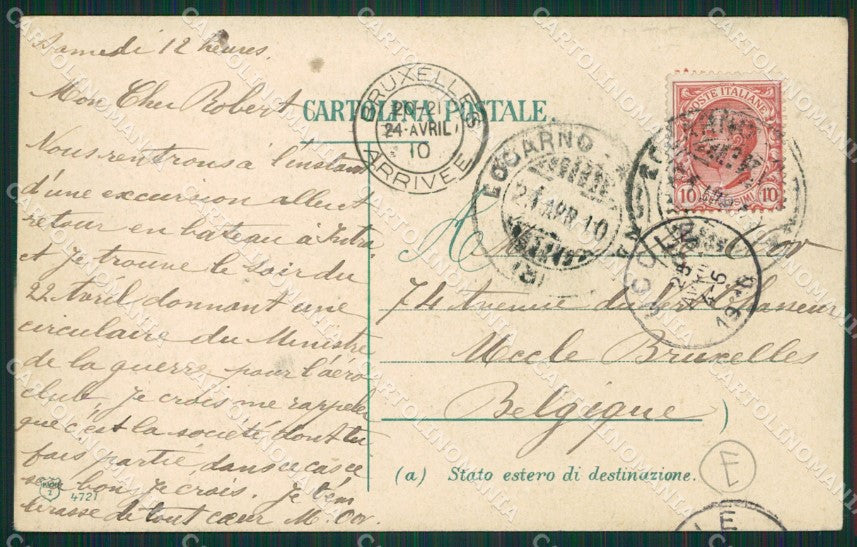 Samedi 12 heures.
Mon Cher Robert
Nous rentrons à l'instant
d'une excursion aller et
retour en bateau à Intra
et je trouve le soir du
22 donnant une
circulaire du Ministre
de la guerre pour l'aéro
club. Je crois me rappeler
que c'est la société dont tu
fais partie, dans ce cas ce
bon je crois. Je t'em
brasse de tout cœur M.
4721
CARTOLINA POSTALE.
BRUXELLES
24 AVRIL
10
ARRIVÉE
LOCARNO
APR 10
POSTE ITALIANE
10 CENTESIMI 10
UCCLE
1910
74 Avenue de
Uccle Bruxelles
Belgique
(a) Stato estero di destinazione.
E
LE
CARTOLINOMANIA